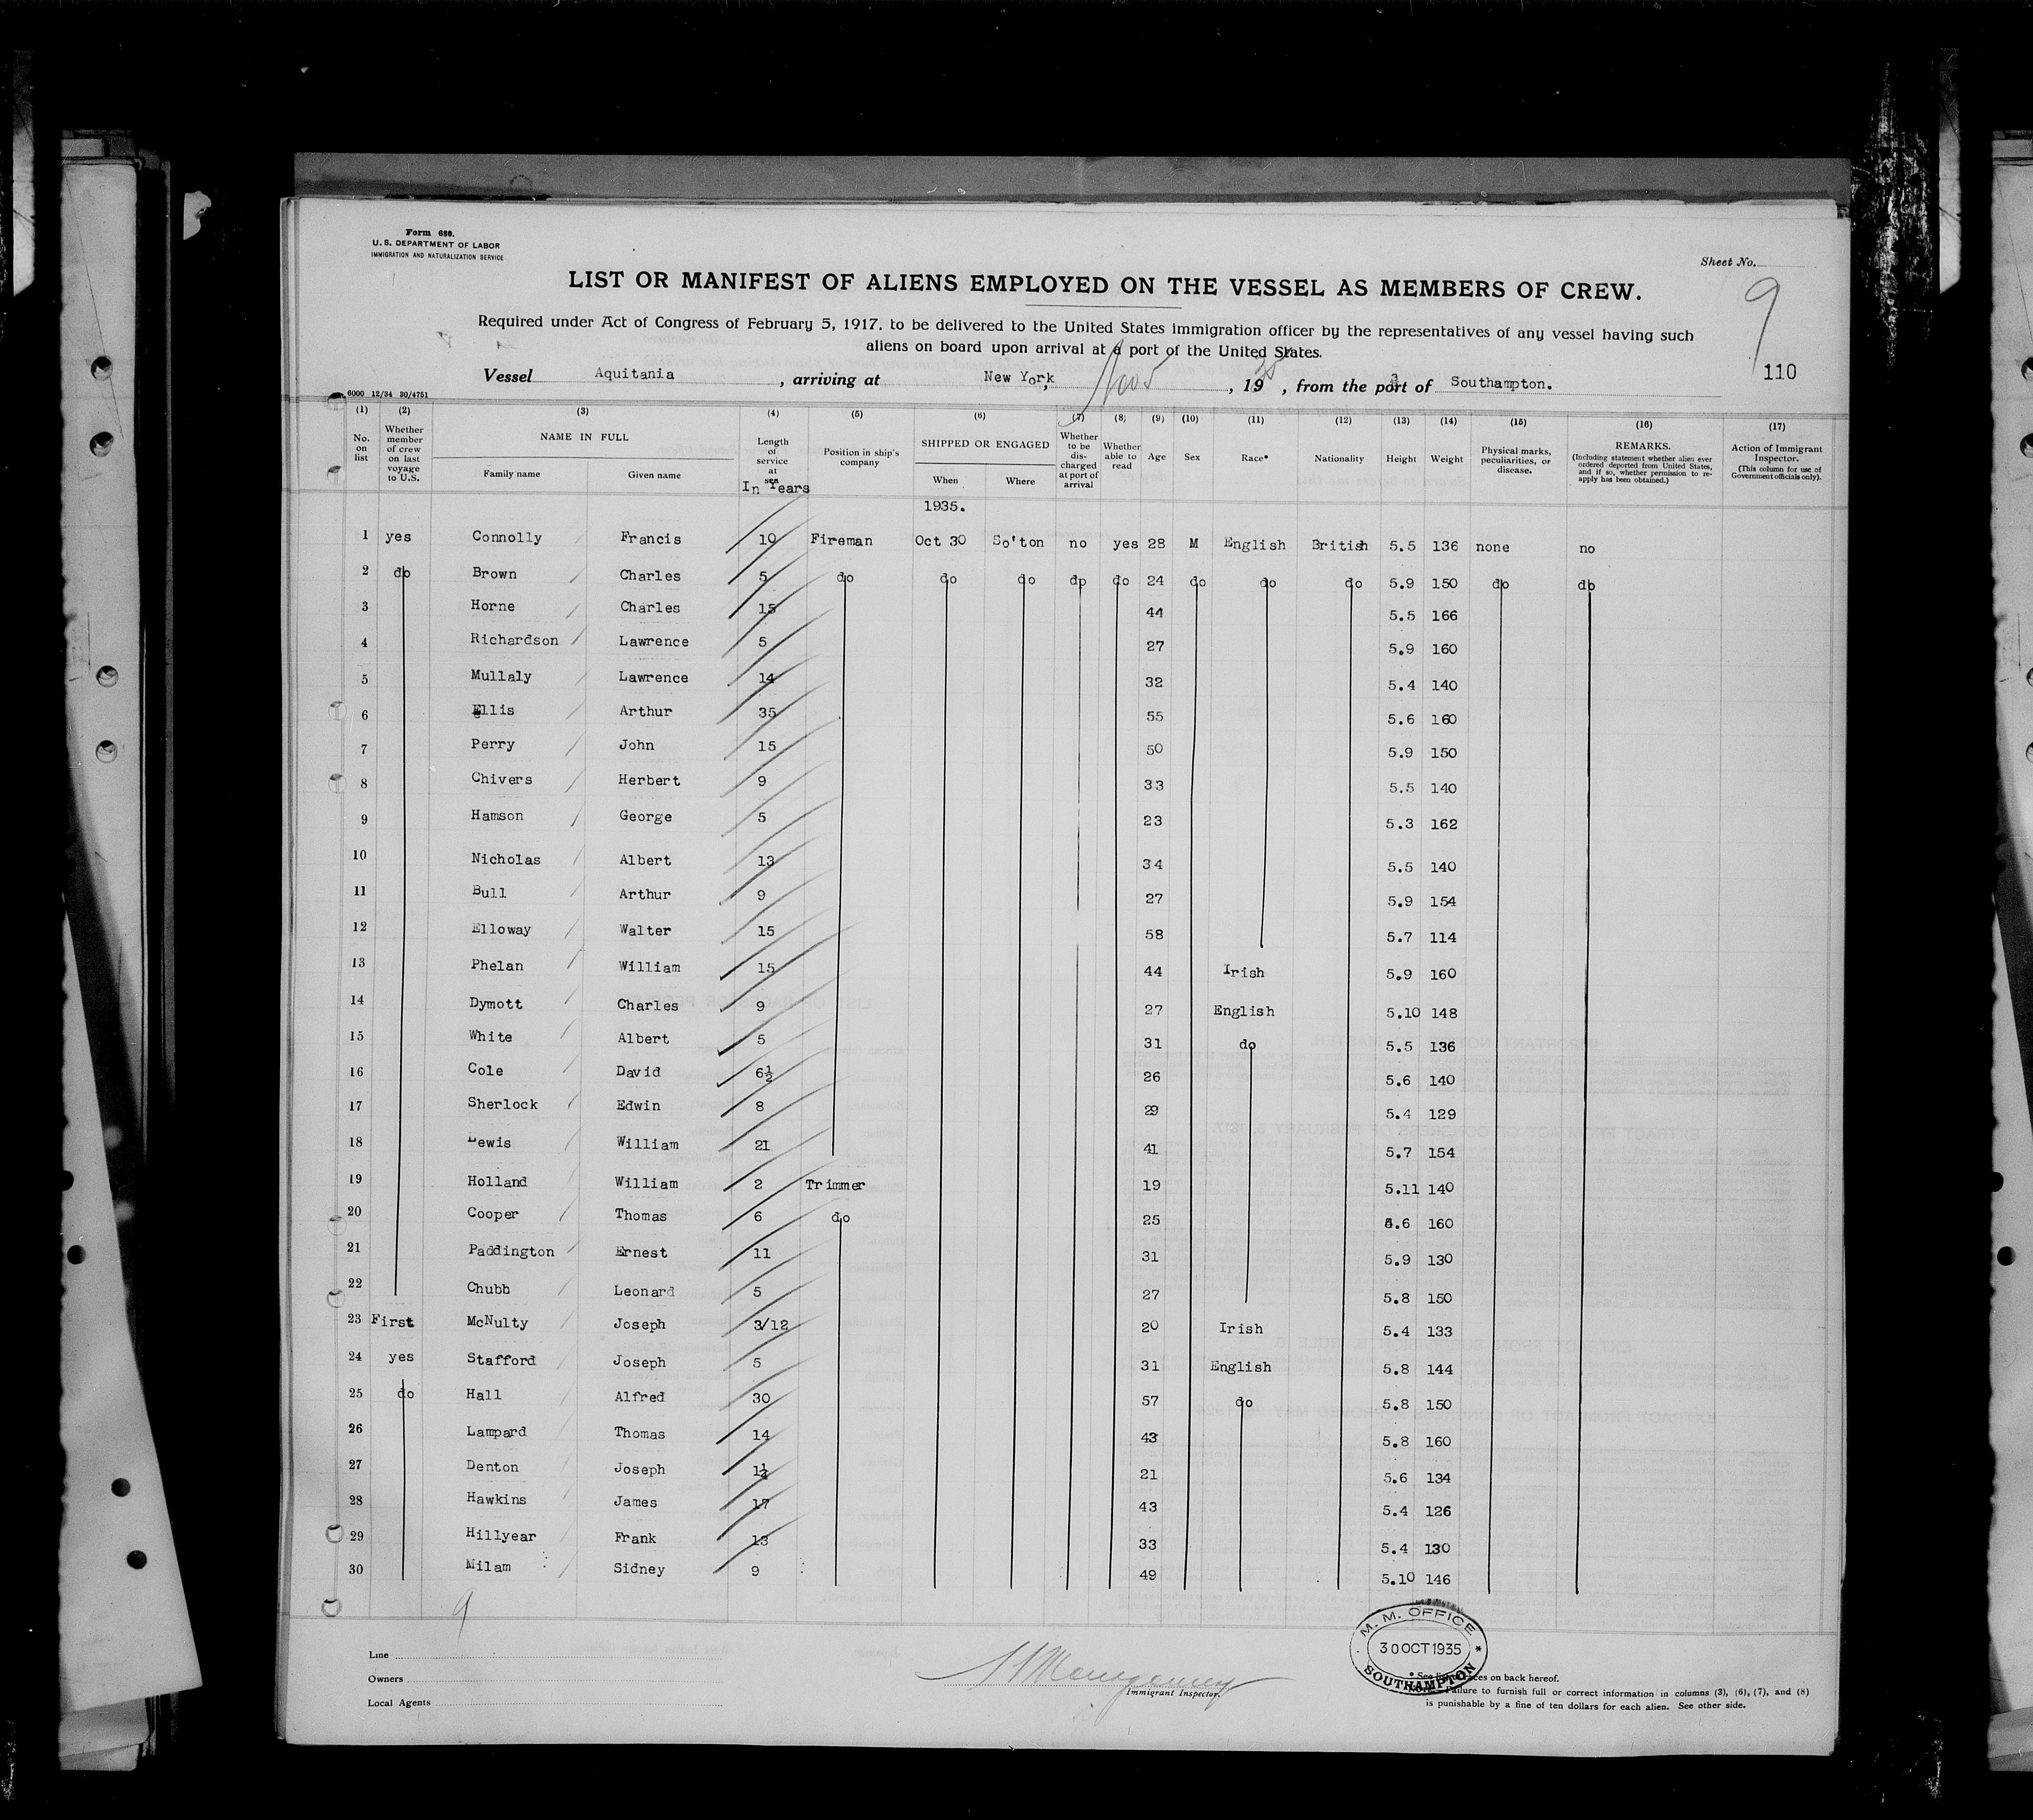 Form 680.
U. S. DEPARTMENT OF LABOR
IMMIGRATION AND NATURALIZATION SERVICE
Sheet No.
9
LIST OR MANIFEST OF ALIENS EMPLOYED ON THE VESSEL AS MEMBERS OF CREW.
Required under Act of Congress of February 5, 1917, to be delivered to the United States immigration officer by the representatives of any vessel having such
aliens on board upon arrival at a port of the United States.
110
Vessel Aquitania , arriving at New York, Nov 5 , 1935 , from the port of Southampton.
6000 12/34 30/4751
(1) (2) (3) (4) (5) (6) (7) (8) (9) (10) (11) (12) (13) (14) (15) (16) (17)
No. on list Whether member of crew on last voyage to U.S. NAME IN FULL Family name Given name Length of service at sea In Years Position in ship's company SHIPPED OR ENGAGED When Where Whether to be discharged at port of arrival Whether able to read Age Sex Race* Nationality Height Weight Physical marks, peculiarities, or disease. REMARKS. (Including statement whether alien ever ordered deported from United States, and if so, whether permission to reapply has been obtained.) Action of Immigrant Inspector. (This column for use of Government officials only).
1935.
1 yes Connolly Francis 10 Fireman Oct 30 So'ton no yes 28 M English British 5.5 136 none no
2 do Brown Charles 5 do do do do do 24 do do do 5.9 150 do do
3 Horne Charles 15 44 5.5 166
4 Richardson Lawrence 5 27 5.9 160
5 Mullaly Lawrence 14 32 5.4 140
6 Ellis Arthur 35 55 5.6 160
7 Perry John 15 50 5.9 150
8 Chivers Herbert 9 33 5.5 140
9 Hamson George 5 23 5.3 162
10 Nicholas Albert 13 34 5.5 140
11 Bull Arthur 9 27 5.9 154
12 Elloway Walter 15 58 5.7 114
13 Phelan William 15 44 Irish 5.9 160
14 Dymott Charles 9 27 English 5.10 148
15 White Albert 5 31 do 5.5 136
16 Cole David 6½ 26 5.6 140
17 Sherlock Edwin 8 29 5.4 129
18 Lewis William 21 41 5.7 154
19 Holland William 2 Trimmer 19 5.11 140
20 Cooper Thomas 6 do 25 5.6 160
21 Paddington Ernest 11 31 5.9 130
22 Chubb Leonard 5 27 5.8 150
23 First McNulty Joseph 3/12 20 Irish 5.4 133
24 yes Stafford Joseph 5 31 English 5.8 144
25 do Hall Alfred 30 57 do 5.8 150
26 Lampard Thomas 14 43 5.8 160
27 Denton Joseph 21 5.6 134
28 Hawkins James 17 43 5.4 126
29 Hillyear Frank 13 33 5.4 130
30 Milam Sidney 9 49 5.10 146
9
Line
Owners
Local Agents
Immigrant Inspector.
M. M. OFFICE
30 OCT 1935
SOUTHAMPTON
* See list of races on back hereof.
Failure to furnish full or correct information in columns (3), (6), (7), and (8)
is punishable by a fine of ten dollars for each alien. See other side.